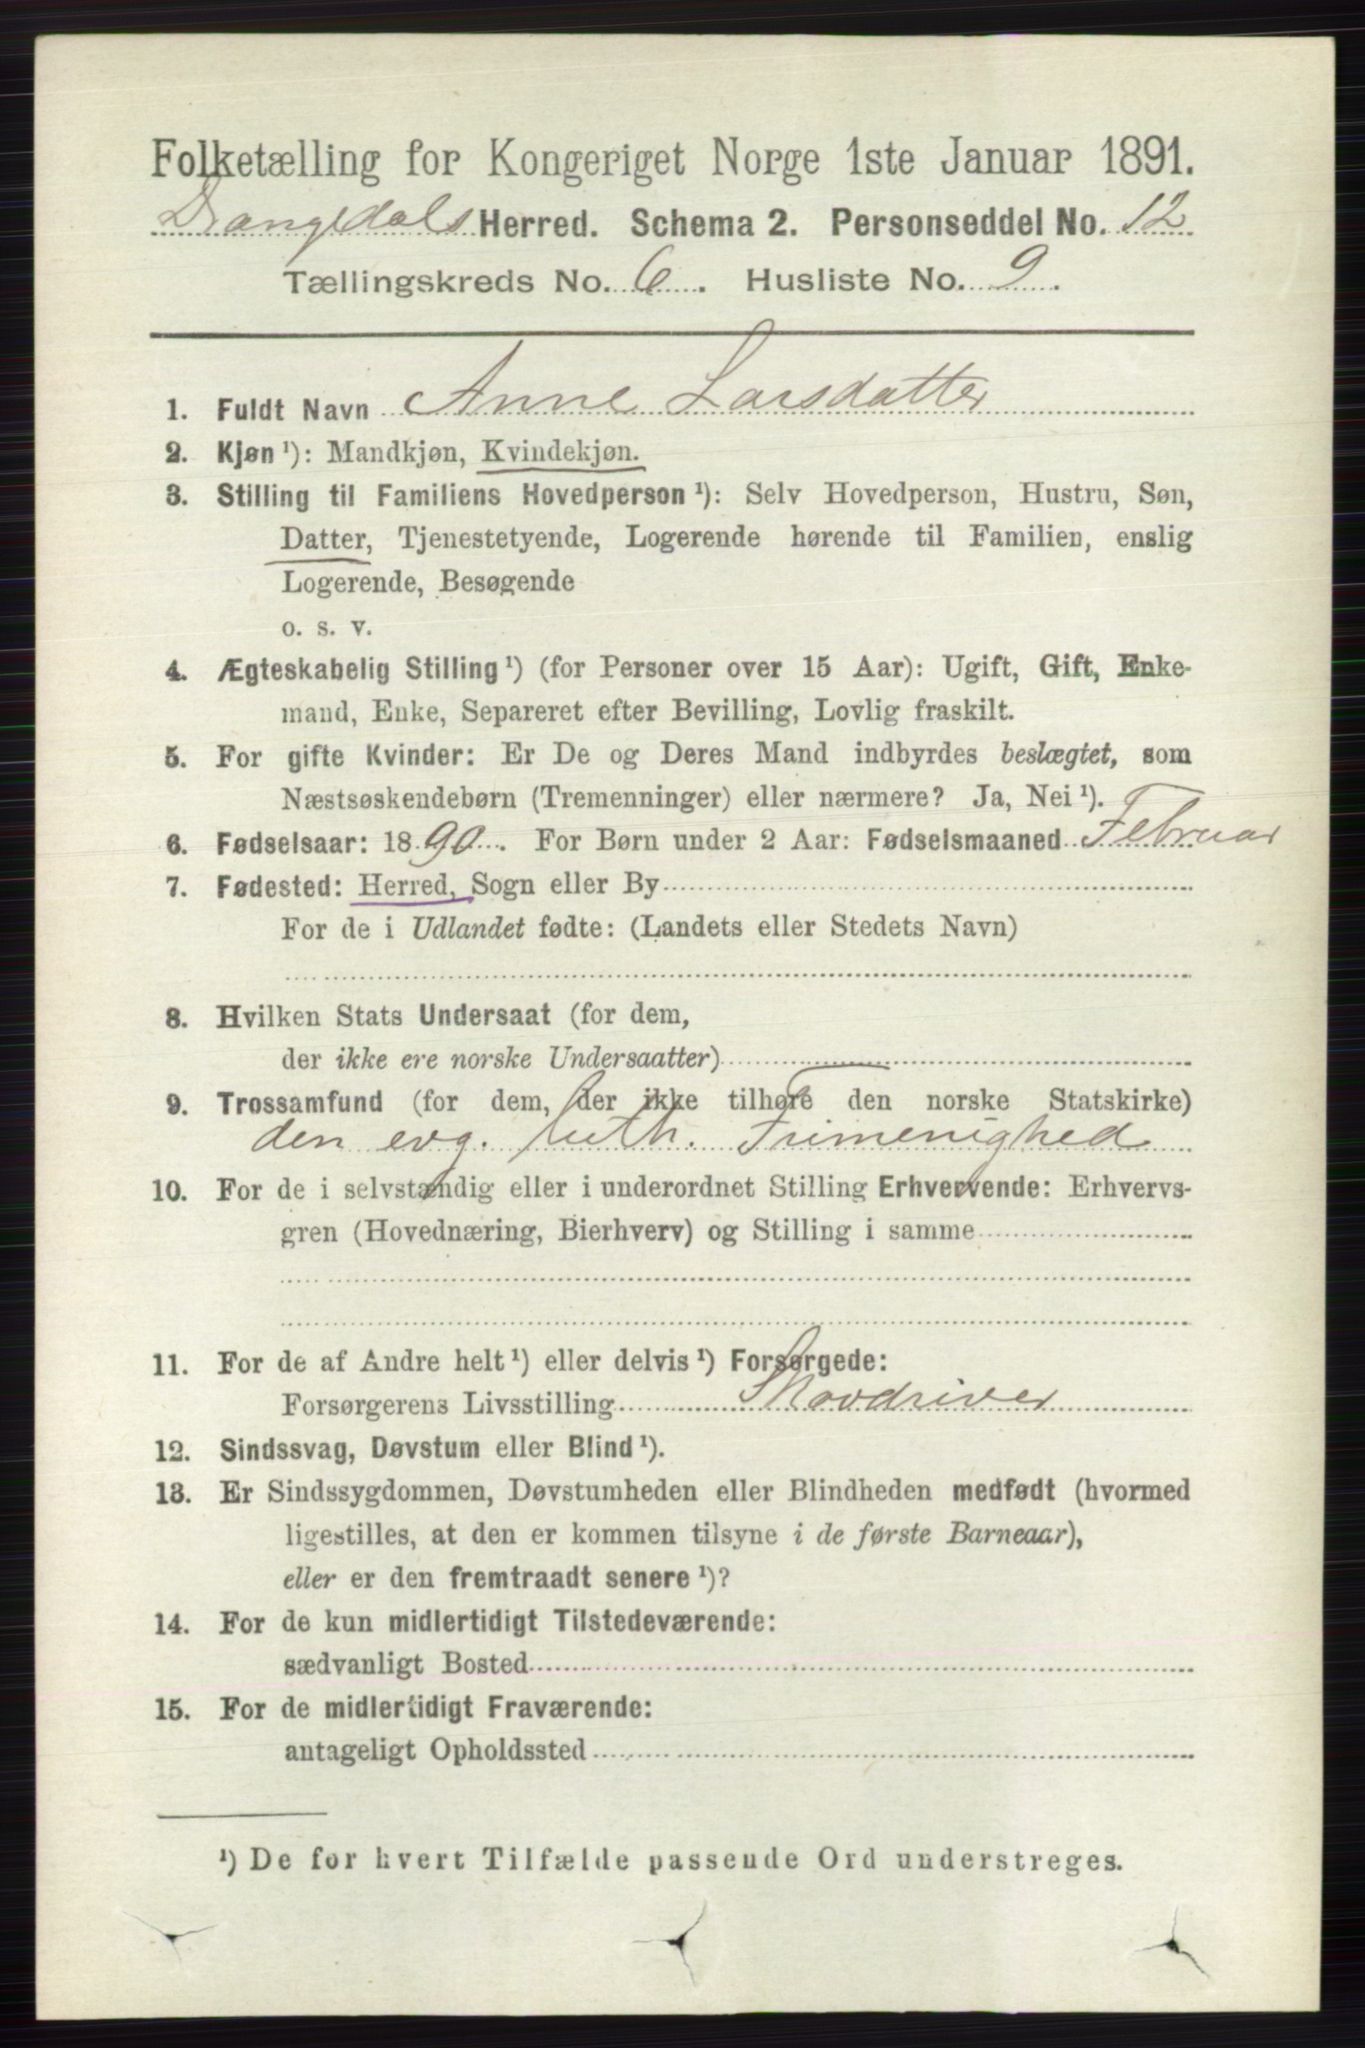 Folketælling for Kongeriget Norge 1ste Januar 1891.
Drangedals Herred. Schema 2. Personseddel No. 12
Tællingskreds No. 6. Husliste No. 9.
1. Fuldt Navn Anne Larsdatter
2. Kjøn ¹): Mandkjøn, Kvindekjøn.
3. Stilling til Familiens Hovedperson ¹): Selv Hovedperson, Hustru, Søn,
Datter, Tjenestetyende, Logerende hørende til Familien, enslig
Logerende, Besøgende
o. s. v.
4. Ægteskabelig Stilling ¹) (for Personer over 15 Aar): Ugift, Gift, Enke-
mand, Enke, Separeret efter Bevilling, Lovlig fraskilt.
5. For gifte Kvinder: Er De og Deres Mand indbyrdes beslægtet, som
Næstsøskendebørn (Tremenninger) eller nærmere? Ja, Nei ¹).
6. Fødselsaar: 1890. For Børn under 2 Aar: Fødselsmaaned Februar
7. Fødested: Herred, Sogn eller By
For de i Udlandet fødte: (Landets eller Stedets Navn)
8. Hvilken Stats Undersaat (for dem,
der ikke ere norske Undersaatter)
9. Trossamfund (for dem, der ikke tilhøre den norske Statskirke)
den evg. luth. Frimenighed
10. For de i selvstændig eller i underordnet Stilling Erhvervende: Erhvervs-
gren (Hovednæring, Bierhverv) og Stilling i samme
11. For de af Andre helt ¹) eller delvis ¹) Forsørgede:
Forsørgerens Livsstilling Skovdriver
12. Sindssvag, Døvstum eller Blind ¹).
13. Er Sindssygdommen, Døvstumheden eller Blindheden medfødt (hvormed
ligestilles, at den er kommen tilsyne i de første Barneaar),
eller er den fremtraadt senere ¹)?
14. For de kun midlertidigt Tilstedeværende:
sædvanligt Bosted
15. For de midlertidigt Fraværende:
antageligt Opholdssted
¹) De for hvert Tilfælde passende Ord understreges.